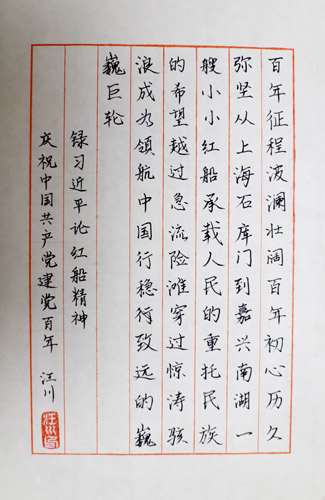 百年征程波澜壮阔百年初心历久
弥坚从上海石库门到嘉兴南湖一
艘小小红船承载人民的重托民族
的希望越过急流险滩穿过惊涛骇
浪成为领航中国行稳致远的巍
巍巨轮
录习近平论红船精神
庆祝中国共产党建党百年 汪川